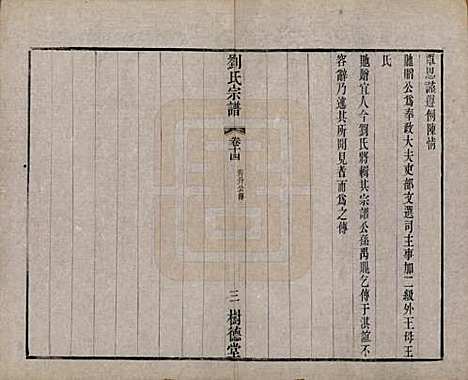 覃恩謹遵例陳情
貤贈公為奉政大夫吏部文選司主事加二級外王母王
氏
貤贈宜人今劉氏將輯其宗譜公孫禹颺乞傳于淇誼不
容辭乃述其所聞見者而為之傳
劉氏宗譜
卷十四
三
樹德堂